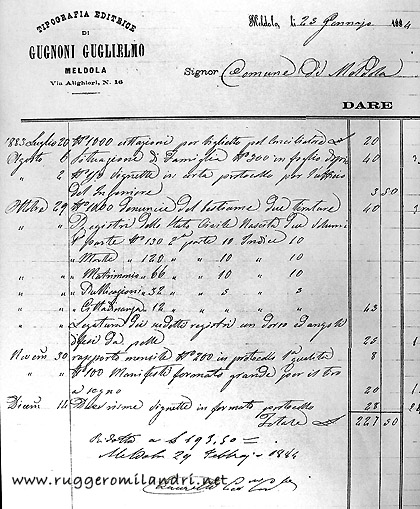 TIPOGRAFIA EDITRICE
DI
GUGNONI GUGLIELMO
MELDOLA
Via Alighieri, N. 16
Meldola li 23 Gennajo 1884
Signor Comune di Meldola
DARE
1883 Luglio 20 N° 1000 citazioni per biglietto pel Conciliatore £ 20
Agosto 6 Situazione di Famiglia N° 300 in foglio 40
" 2 vignette in carta protocollo per l'uffizio
del Ingegnere 3 50
29 N° 1000 denuncie del bestiame due tirature 40
" " Registri dello Stato Civile Nascita due Volumi
1ª parte N° 130 2ª parte 10 Indice 10
" " " Morte " 120 " " 10 " 10
" " " Matrimonio " 66 " " 10 " 10
" " " Pubblicazioni " 32 " " 5 " 5
" " " Cittadinanza " 12 " " " " 43
" " Legatura dei suddetti registri con dorso ed angoli
di pelle 25
Novem 30 rapporto mensile N° 200 in protocollo 1ª qualità 8
" " N° 100 Manifesti formato grande per il tiro
a segno 20
Dicem 14 Due risme vignette in formato protocollo 28
Totale £ 227 50
Ridotta a £ 193.50 =
Meldola 29 Febbrajo 1884
www.ruggeromilandri.net